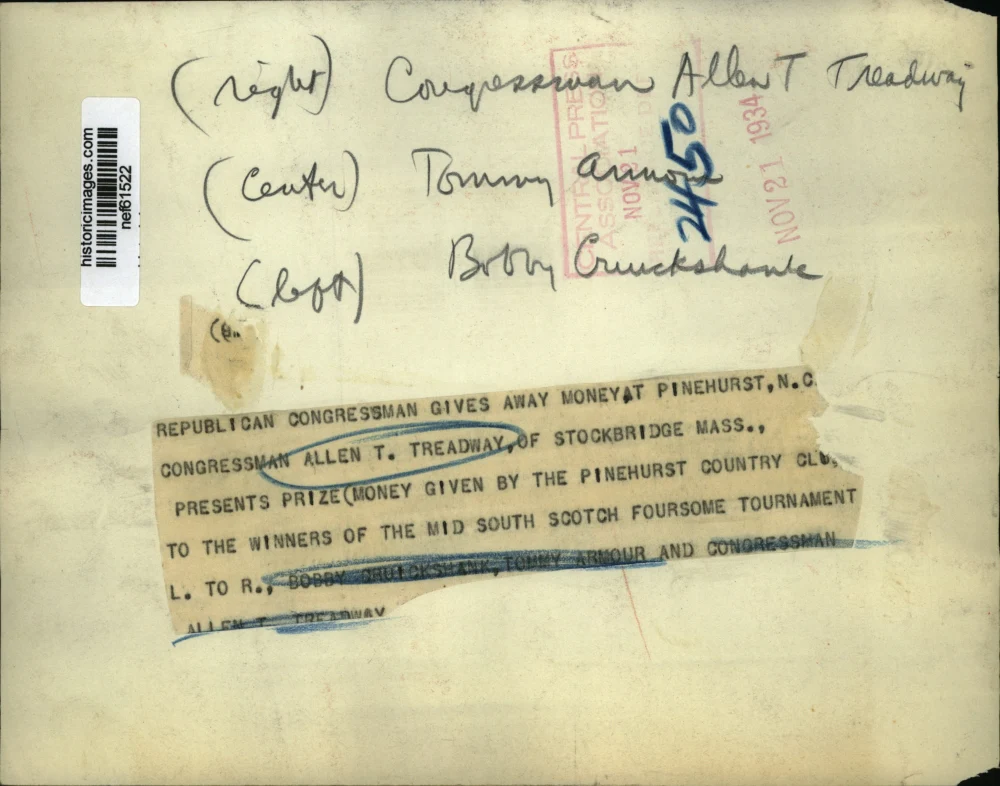 (right) Congressman Allen T Treadway
(Center) Tommy Armour
(left) Bobby Cruickshank
CENTRAL PRESS
ASSOCIATION
NOV 21
2450
NOV 21 1934
historicimages.com
nef61522
REPUBLICAN CONGRESSMAN GIVES AWAY MONEY AT PINEHURST, N.C.
CONGRESSMAN ALLEN T. TREADWAY, OF STOCKBRIDGE MASS.,
PRESENTS PRIZE (MONEY GIVEN BY THE PINEHURST COUNTRY CLU
TO THE WINNERS OF THE MID SOUTH SCOTCH FOURSOME TOURNAMENT
L. TO R., BOBBY CRUICKSHANK, TOMMY ARMOUR AND CONGRESSMAN
ALLEN T. TREADWAY